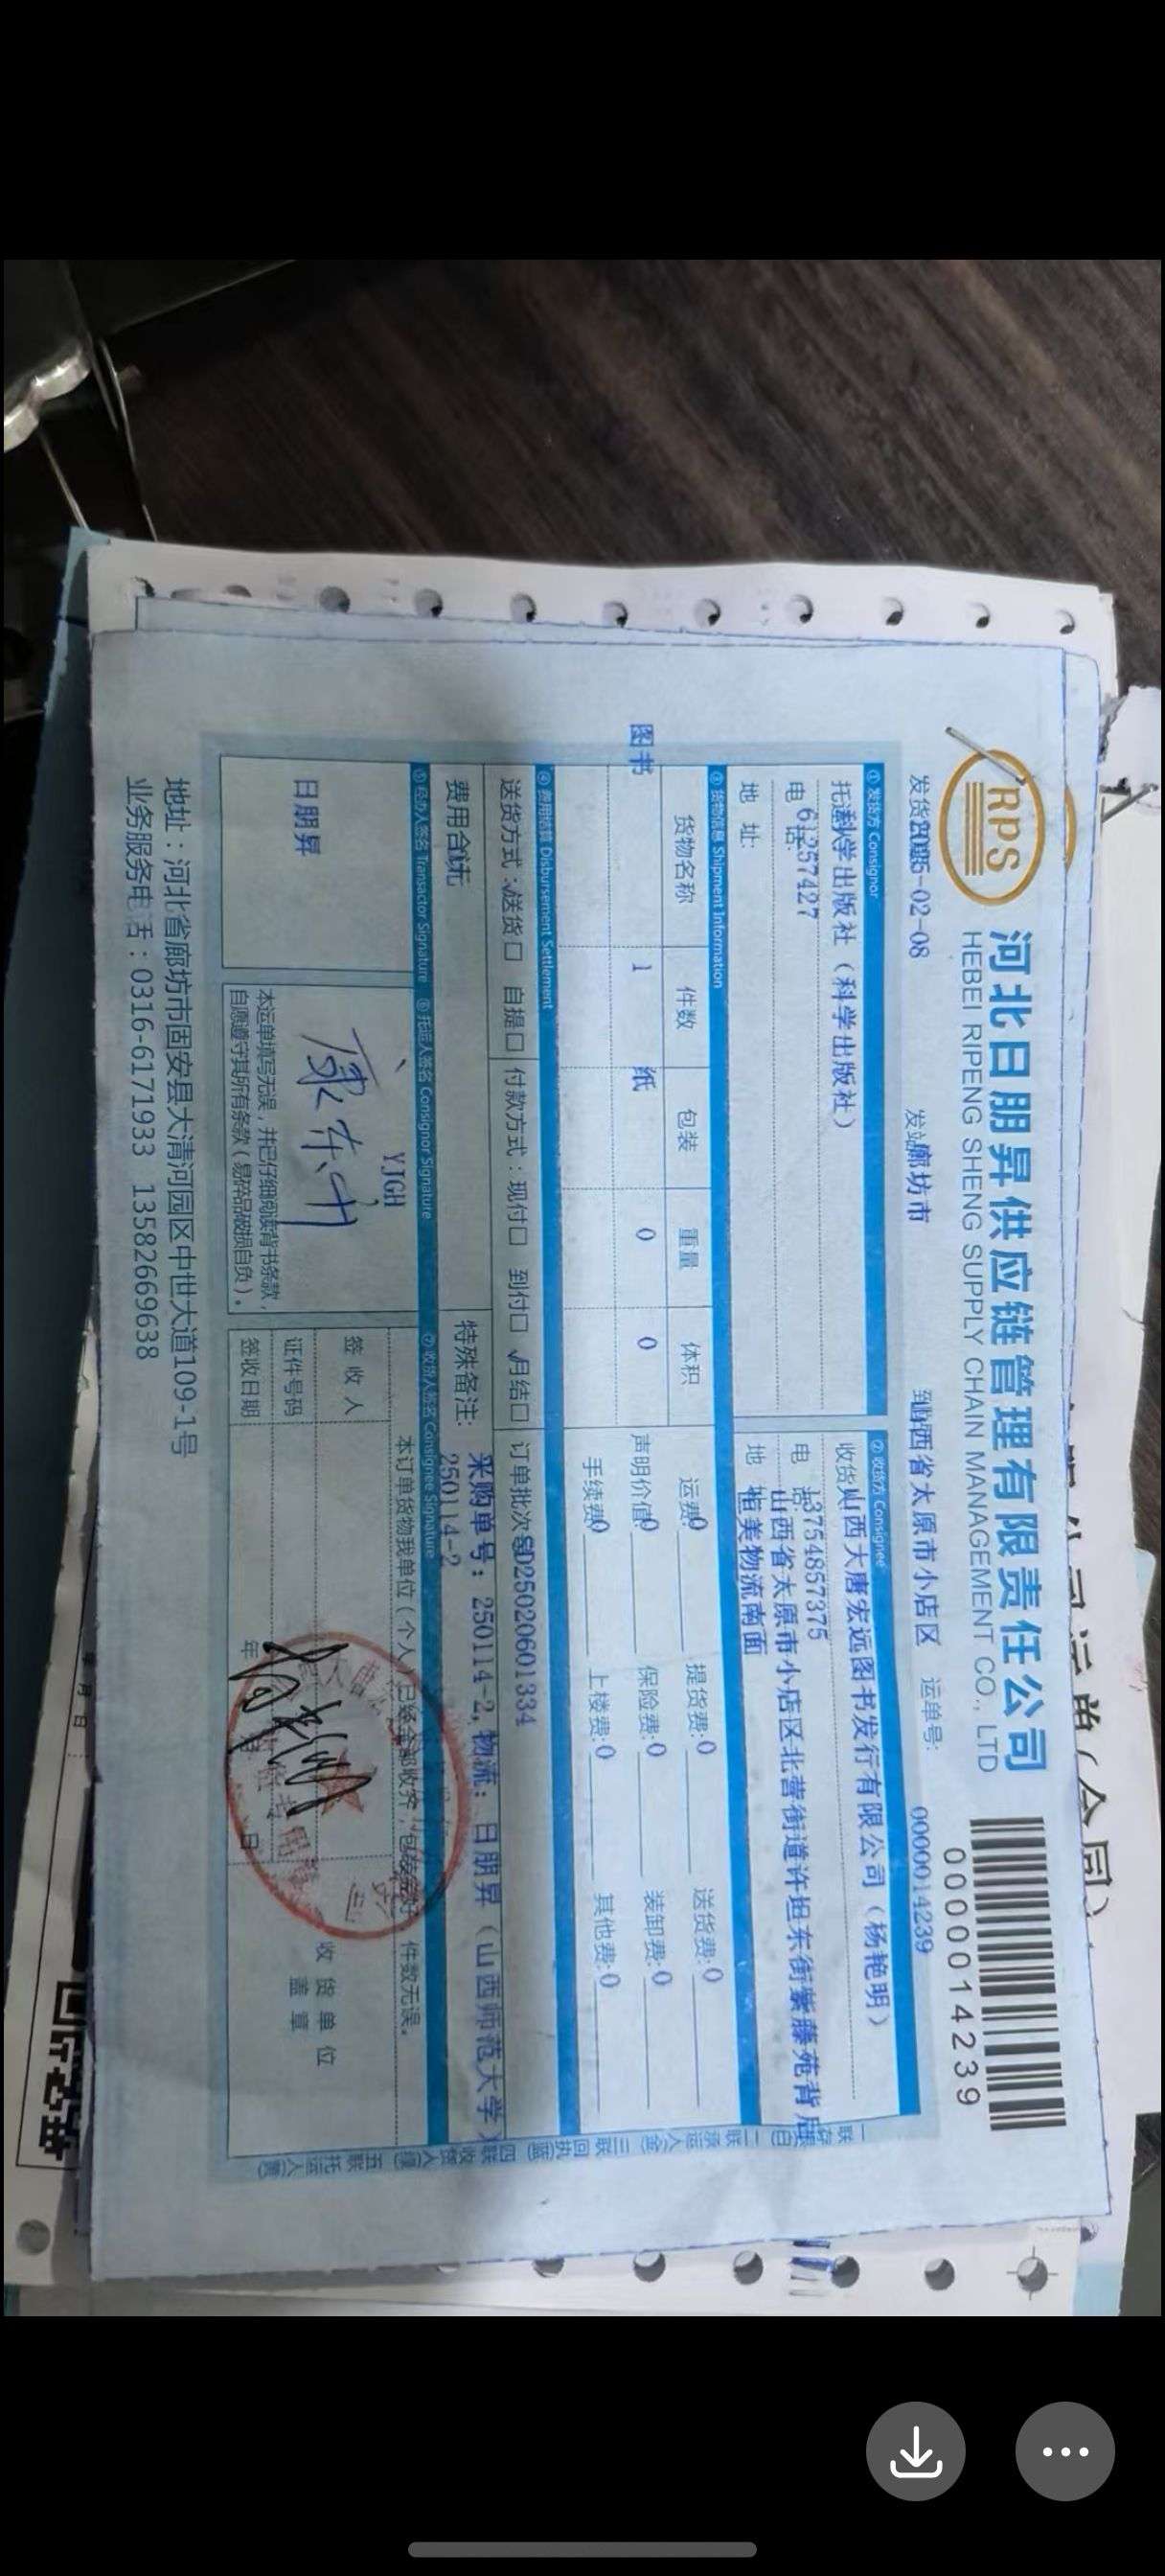 RPS
河北日朋昇供应链管理有限责任公司
HEBEI RIPENG SHENG SUPPLY CHAIN MANAGEMENT CO., LTD
0000014239
发货 2025-02-08 发站 廊坊市 到站 山西省太原市小店区 运单号: 0000014239
① 发货方 Consignor
托运 科学出版社（科学出版社）
电话 61257427
地 址:
② 收货方 Consignee
收货人 山西大唐宏远图书发行有限公司（杨艳明）
电话 13754857375
地址 山西省太原市小店区北营街道许坦东街紫藤苑背后
恒美物流南面
③ 货物信息 Shipment Information
货物名称 件数 包装 重量 体积
图书 1 纸 0 0
运费 0 提货费:0 送货费:0
声明价值 0 保险费:0 装卸费:0
手续费 0 上楼费:0 其他费:0
④ 费用结算 Disbursement Settlement
送货方式:√送货口 自提口 付款方式:现付口 到付口 √月结口 订单批次号 SD25020601334
费用合计 元
特殊备注: 采购单号：250114-2，物流：日朋昇（山西师范大学）
250114-2
⑤ 经办人签名 Transactor Signature ⑥ 托运人签名 Consignor Signature ⑦ 收货人签名 Consignee Signature
日朋昇
YJGH
本运单填写无误，并已仔细阅读背书条款，
自愿遵守其所有条款（易碎品破损自负）。
本订单货物我单位（个人）已经全部收齐，包装完好，件数无误。
签 收 人
证件号码
签收日期 年 月 日
收 货 单 位
盖 章
一联存根(白) 二联承运人(金) 三联回执(蓝) 四联收货人(绿) 五联托运人(黄)
地址：河北省廊坊市固安县大清河园区中世大道109-1号
业务服务电话：0316-6171933 13582669638